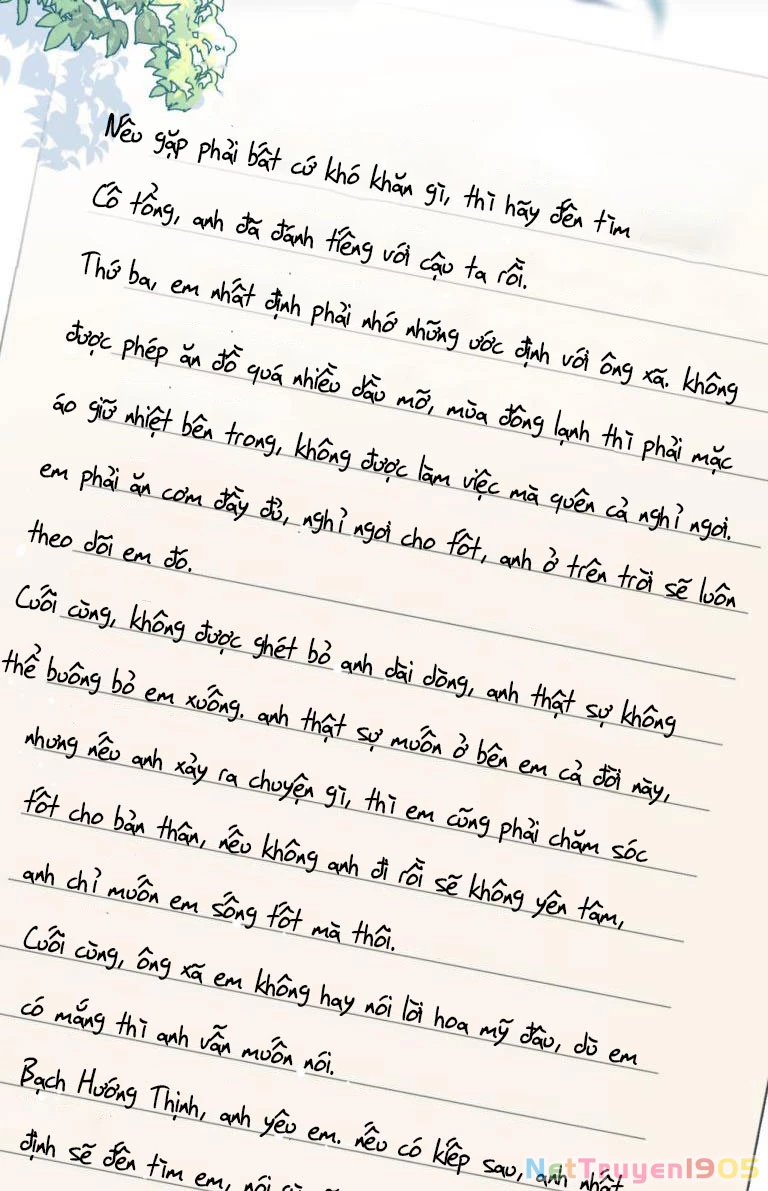 Nếu gặp phải bất cứ khó khăn gì, thì hãy đến tìm
Cố tổng, anh đã đánh tiếng với cậu ta rồi.
Thứ ba, em nhất định phải nhớ những ước định với ông xã. không
được phép ăn đồ quá nhiều dầu mỡ, mùa đông lạnh thì phải mặc
áo giữ nhiệt bên trong, không được làm việc mà quên cả nghỉ ngơi.
em phải ăn cơm đầy đủ, nghỉ ngơi cho tốt, anh ở trên trời sẽ luôn
theo dõi em đó.
Cuối cùng, không được ghét bỏ anh dài dòng, anh thật sự không
thể buông bỏ em xuống. anh thật sự muốn ở bên em cả đời này,
nhưng nếu anh xảy ra chuyện gì, thì em cũng phải chăm sóc
tốt cho bản thân, nếu không anh đi rồi sẽ không yên tâm,
anh chỉ muốn em sống tốt mà thôi.
Cuối cùng, ông xã em không hay nói lời hoa mỹ đâu, dù em
có mắng thì anh vẫn muốn nói.
Bạch Hướng Thịnh, anh yêu em. nếu có kiếp sau, anh nhất
định sẽ đến tìm em, nói
NetTruyen1905